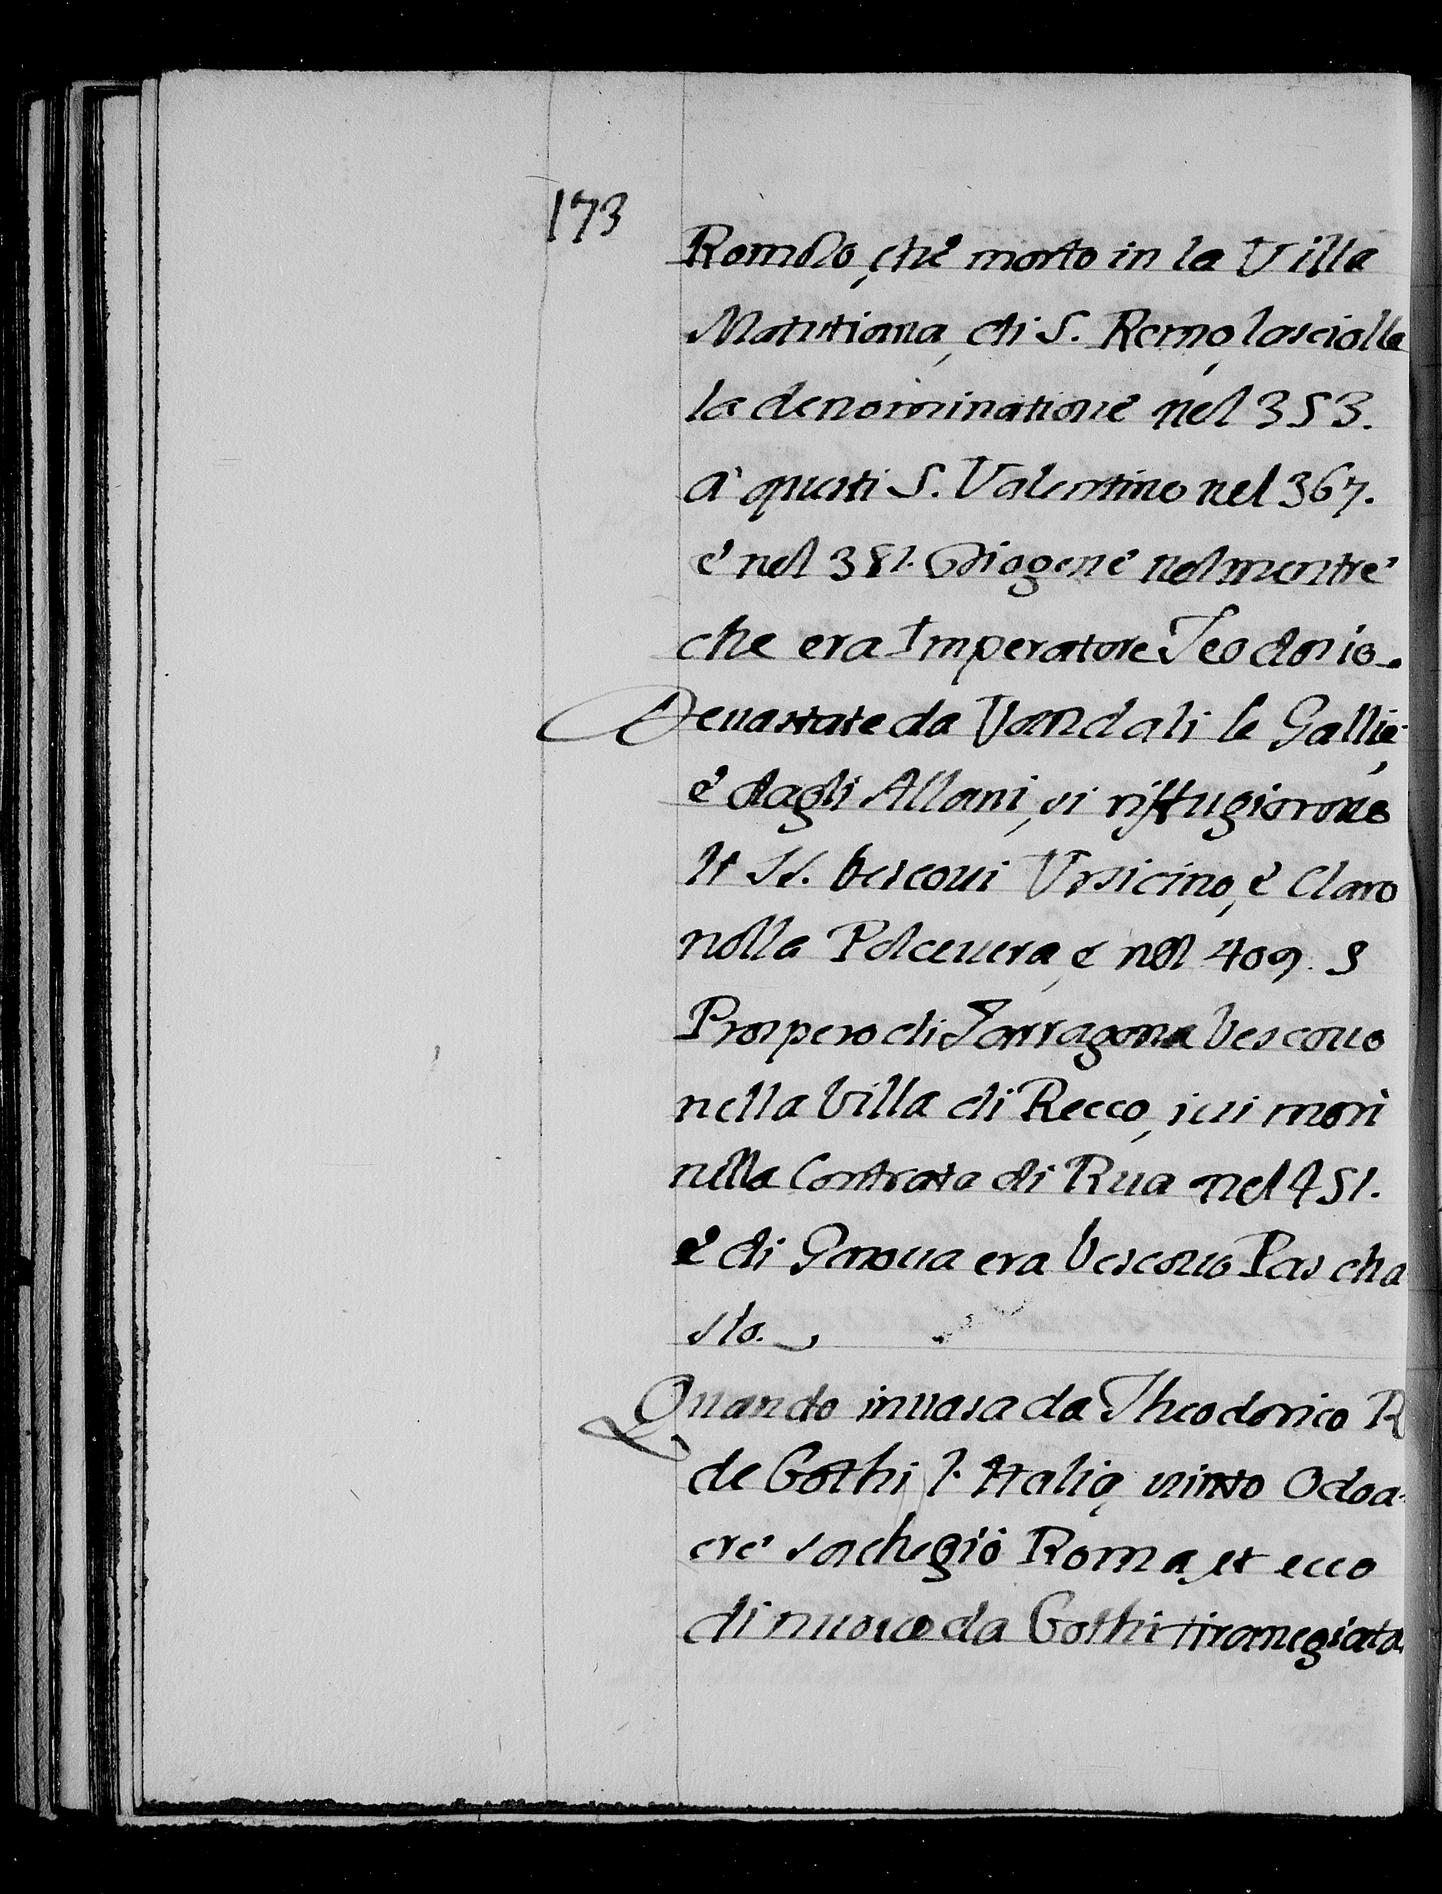 173
Romolo, che' morto in la Villa
Matutiana, di S. Remo, lasciolle
la denominatione' nel 353.
a' questi S. Valentino nel 367.
e' nel 381. Diogene' nel mentre'
che era Imperatore Teodosio.
Deuastate da Vandali le Gallie,
e' dagli Allani, si riffugiorono
li SS. Vescoui Vrsicino, e' Claro
nella Polceuera, e nel 409. S
Prospero di Tarragona Vescouo
nella Villa di Recco, iui morì
nella Contrata di Rua nel 451.
e' di Genoua era Vescouo Pascha
sio.
Quando inuasa da Theodorico R
de Gothi l'Italia, uinto Odoa-
cre' sachegiò Roma, et ecco
di nuouo da Gothi tiranegiata